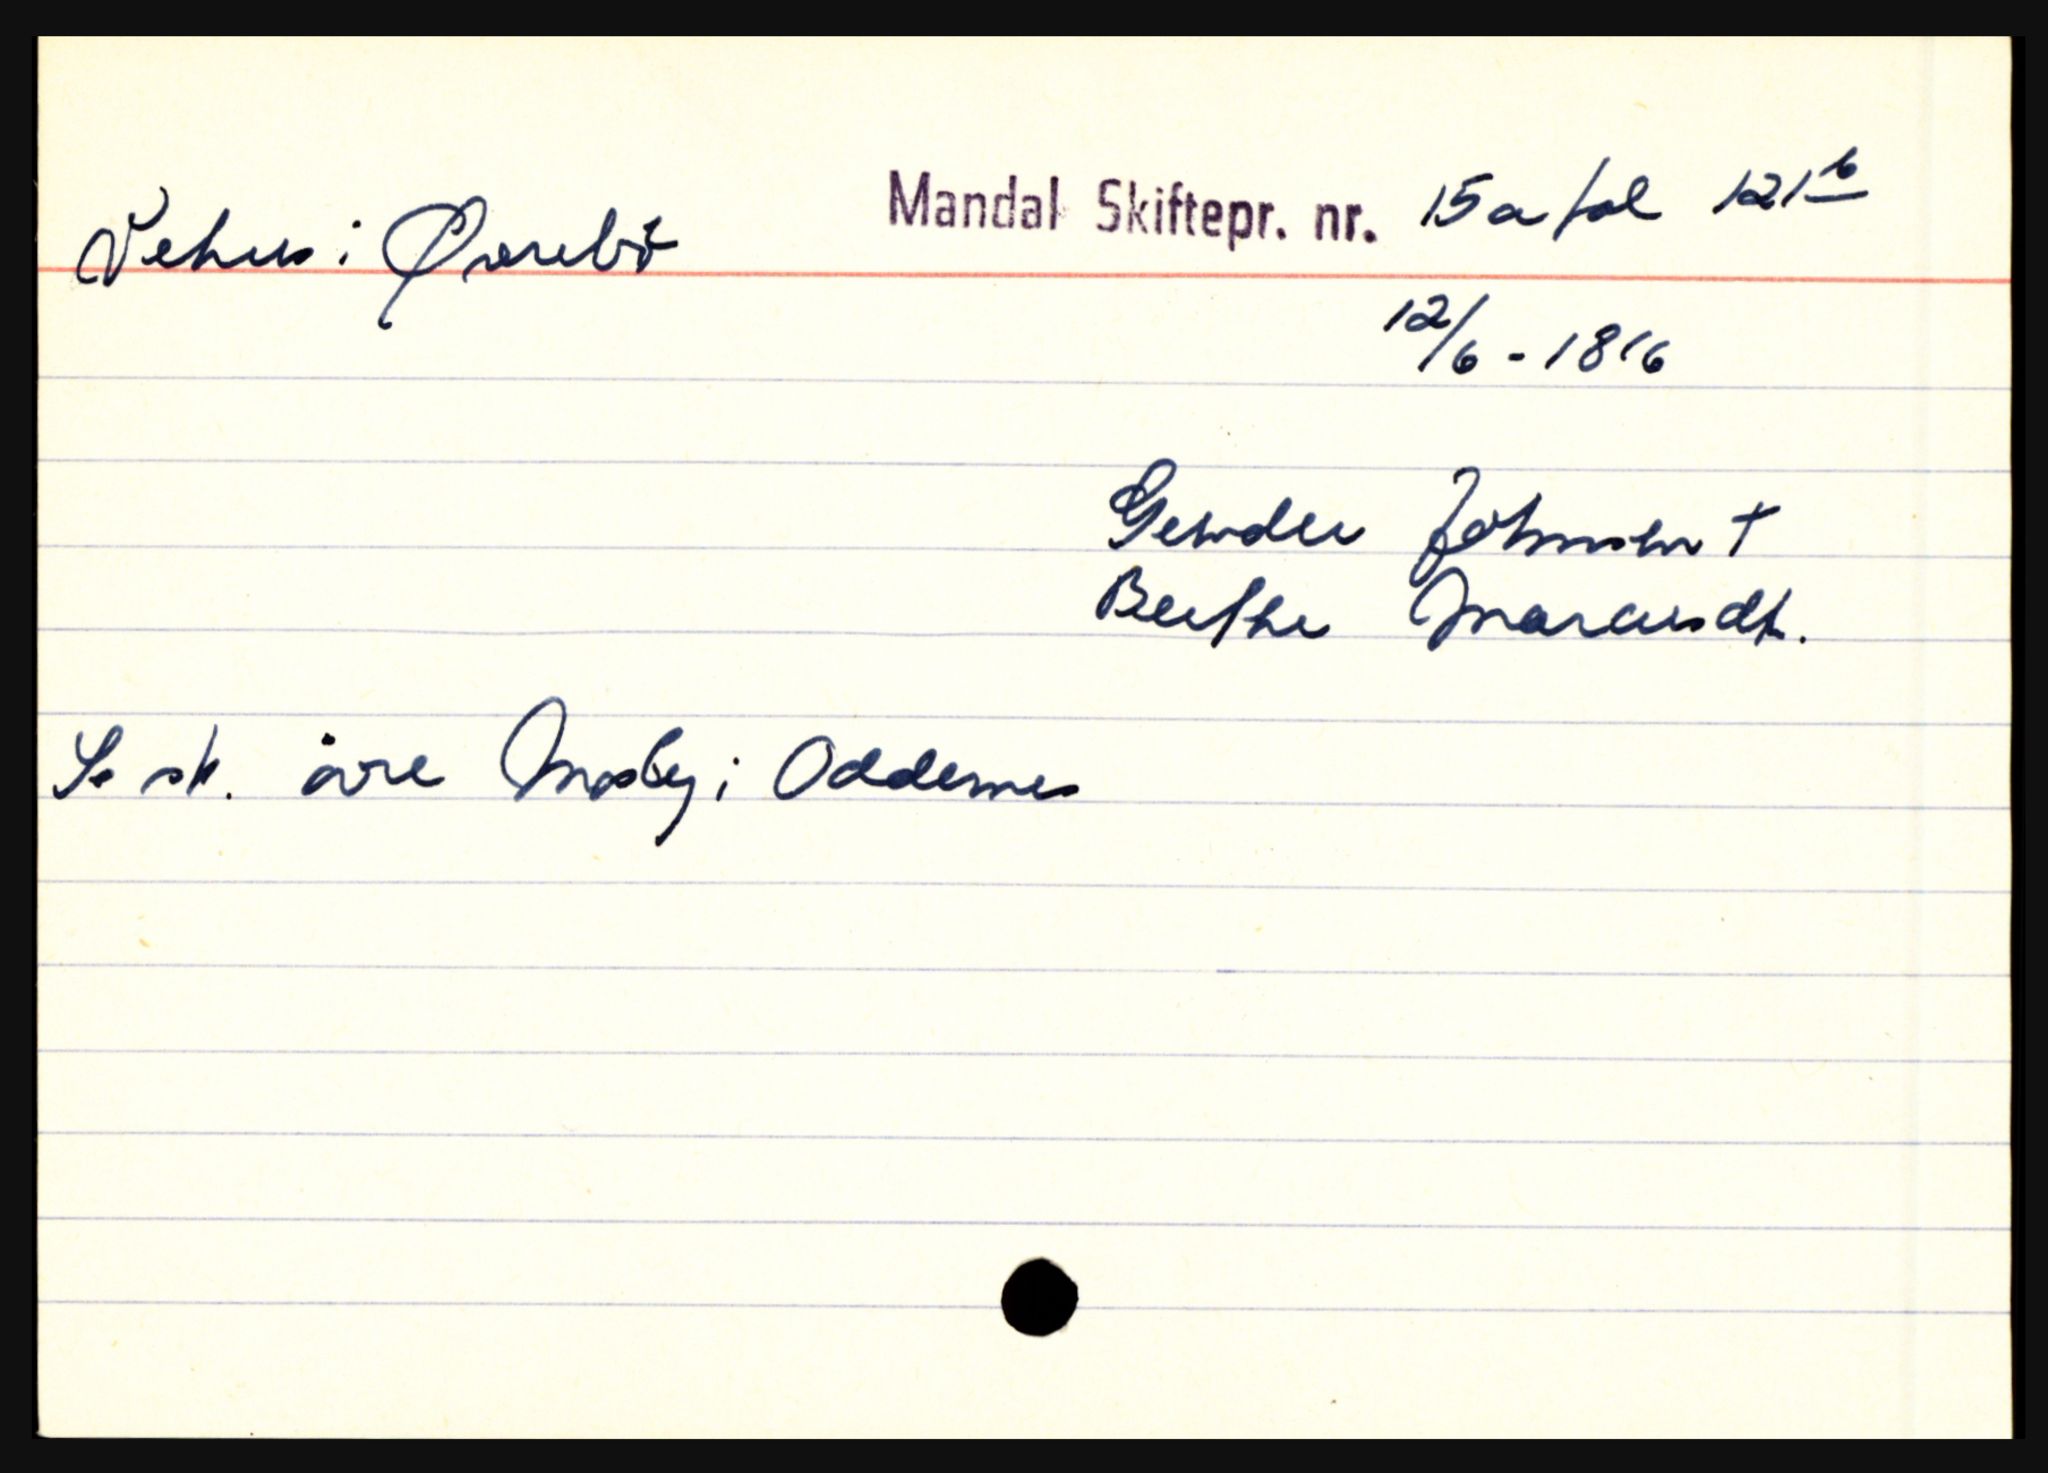 Vehus i Øvrebö Mandal Skiftepr. nr. 15a fol 121 b
12/6 - 1816
Gunder Johnsen +
Berthe Marcusdt.
Se sk. övre Mosby i Oddernes